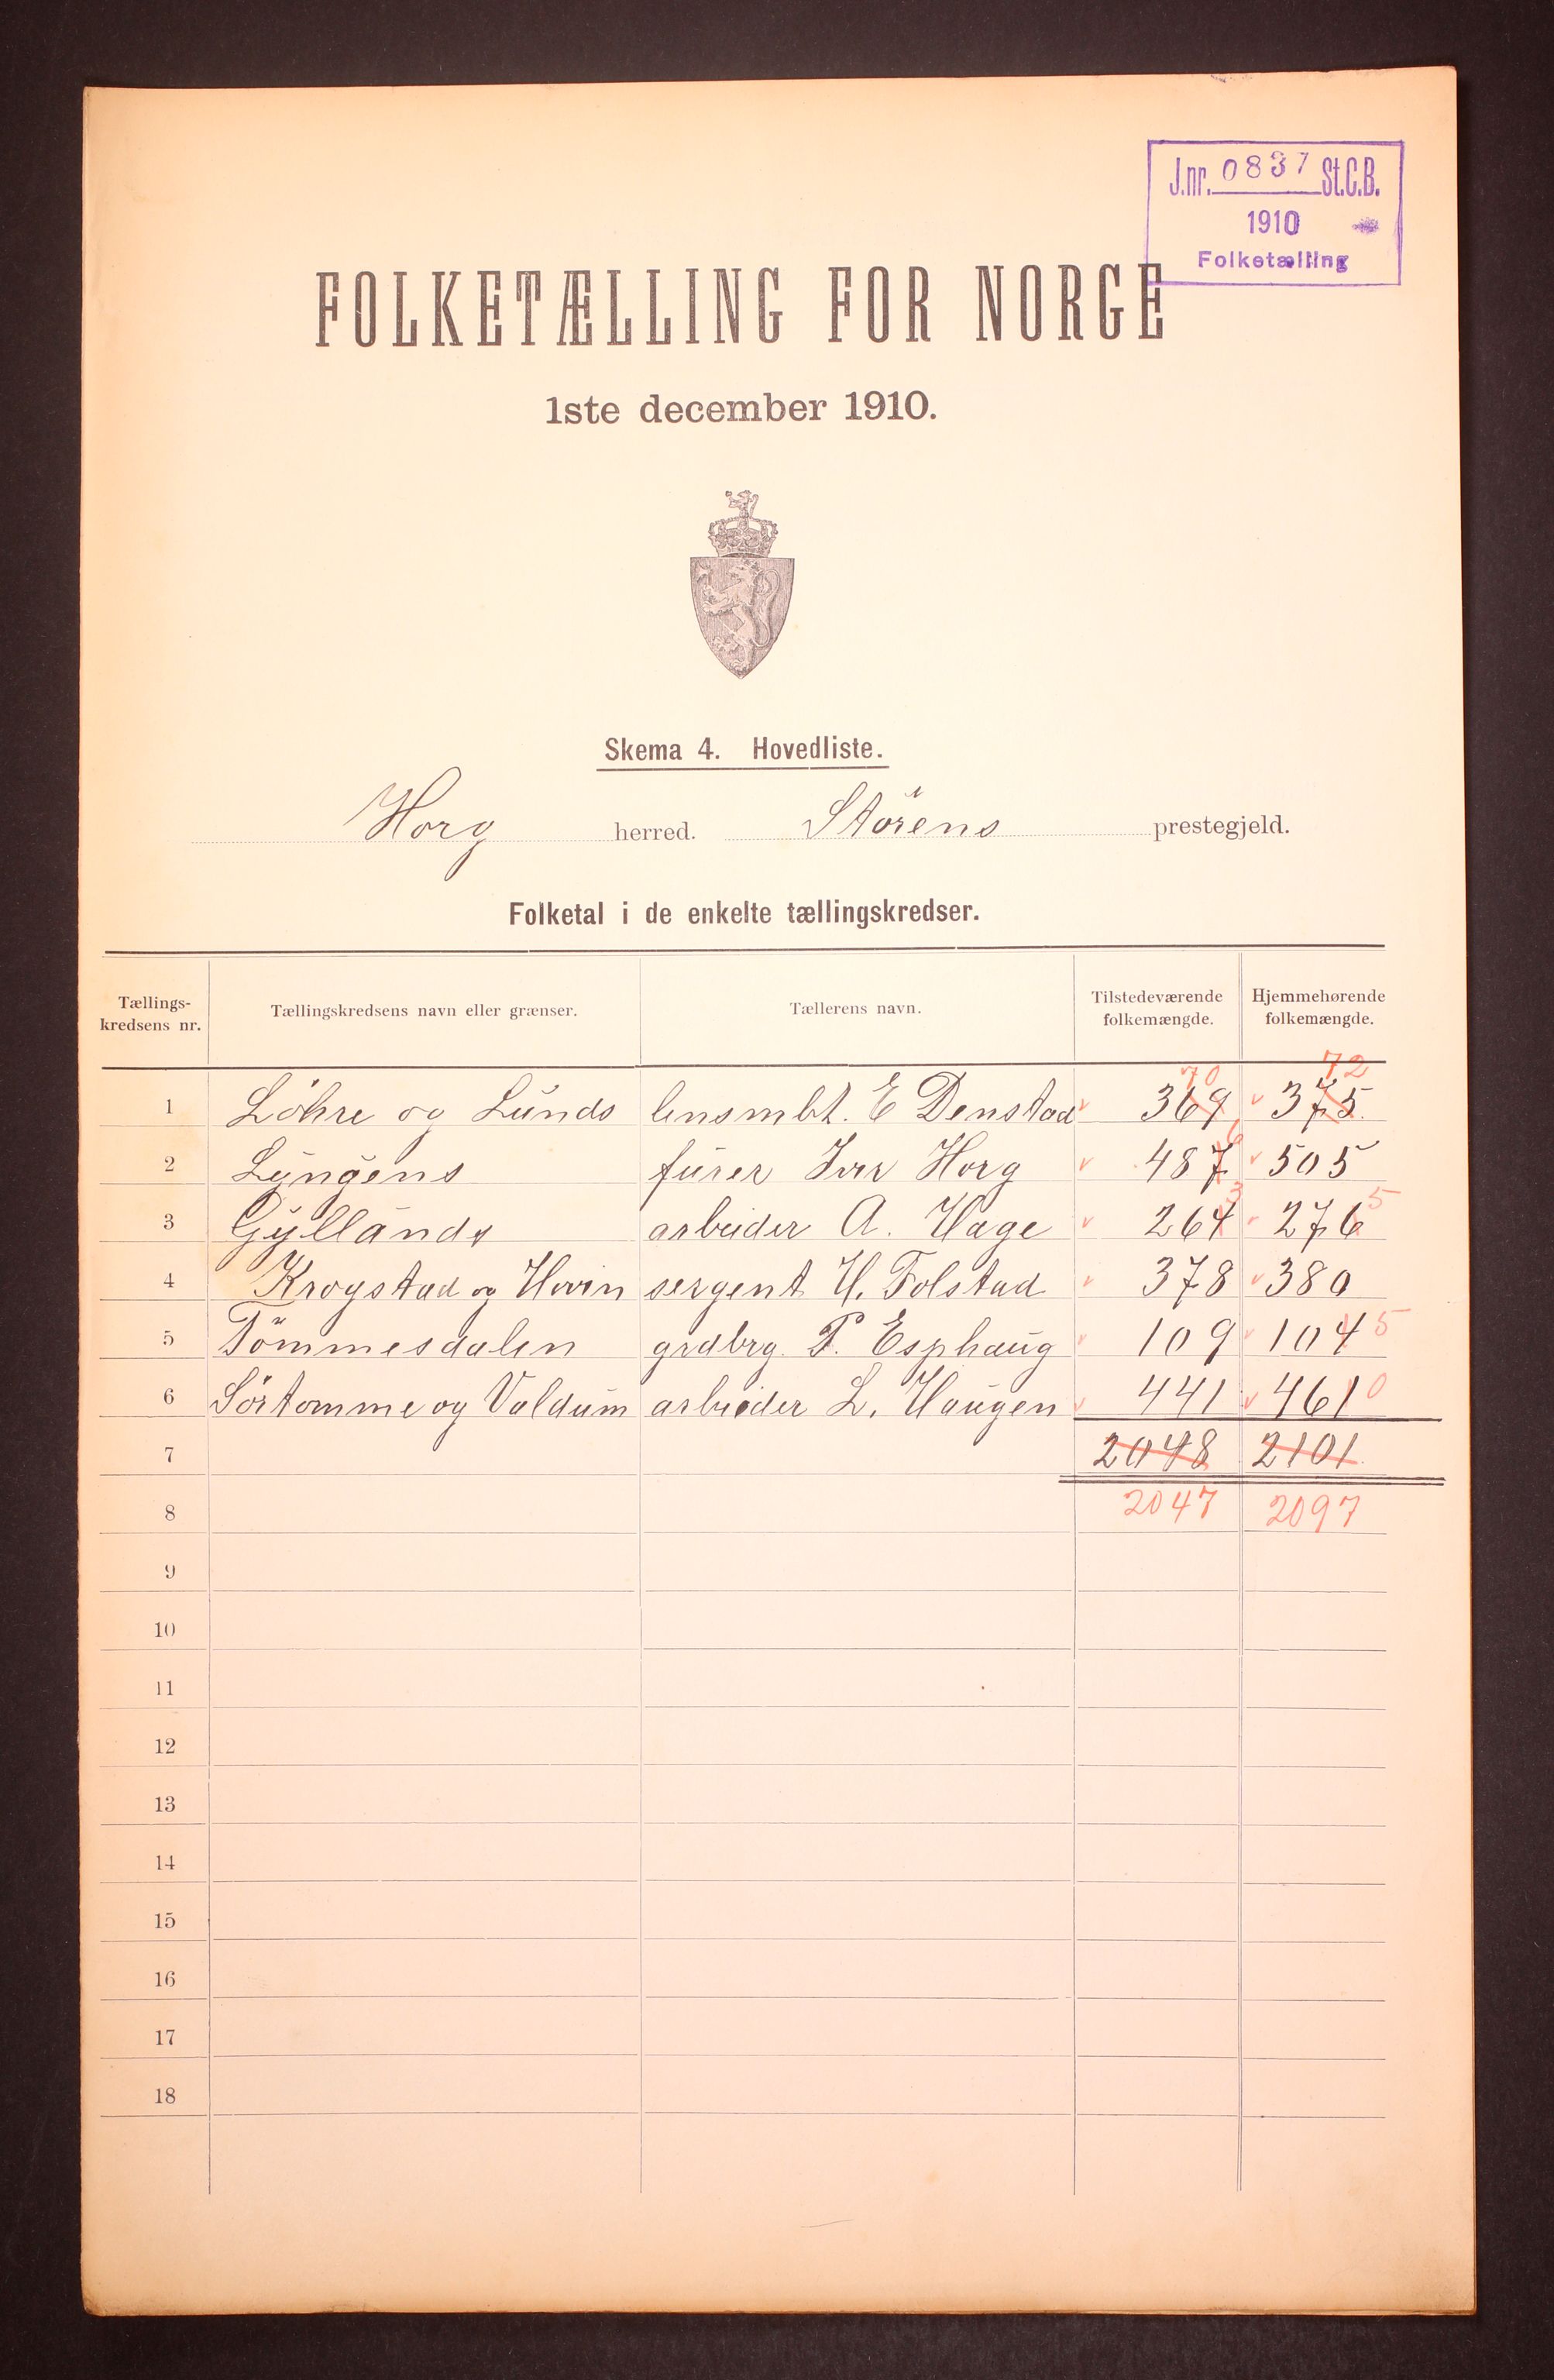 J.nr. 0837 St.C.B.
1910
Folketælling
FOLKETÆLLING FOR NORGE
1ste december 1910.
Skema 4. Hovedliste.
Horg herred. Störens prestegjeld.
Folketal i de enkelte tællingskredser.
Tællings-kredsens nr. Tællingskredsens navn eller grænser. Tællerens navn. Tilstedeværende folkemængde. Hjemmehørende folkemængde.
70 72
1 Löhre og Lunds lensmbt. E Denstad 369 375
6
2 Lyngens furer Iver Horg 487 505
3 5
3 Gyllands arbeider A. Hage 264 276
4 Krogstad og Hovin sergent H. Folstad 378 380
5 Tömmesdalen grdbrg. P. Esphaug 109 104 5
6 Sörtomme og Valdum arbeider L. Haugen 441 461 0
7 2048 2101
8 2047 2097
9
10
11
12
13
14
15
16
17
18